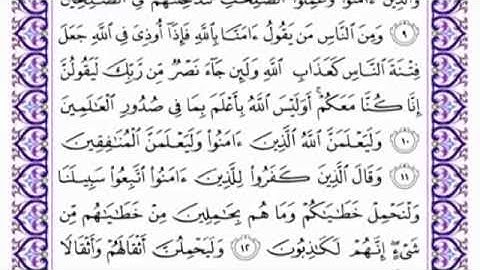 وَالَّذِينَ ءَامَنُوا۟ وَعَمِلُوا۟ الصَّـٰلِحَـٰتِ لَنُدْخِلَنَّهُمْ فِى الصَّـٰلِحِينَ
٩ وَمِنَ النَّاسِ مَن يَقُولُ ءَامَنَّا بِاللَّهِ فَإِذَآ أُوذِىَ فِى اللَّهِ جَعَلَ
فِتْنَةَ النَّاسِ كَعَذَابِ اللَّهِ وَلَئِن جَآءَ نَصْرٌ مِّن رَّبِّكَ لَيَقُولُنَّ
إِنَّا كُنَّا مَعَكُمْ ۚ أَوَلَيْسَ اللَّهُ بِأَعْلَمَ بِمَا فِى صُدُورِ الْعَـٰلَمِينَ
١٠ وَلَيَعْلَمَنَّ اللَّهُ الَّذِينَ ءَامَنُوا۟ وَلَيَعْلَمَنَّ الْمُنَـٰفِقِينَ
١١ وَقَالَ الَّذِينَ كَفَرُوا۟ لِلَّذِينَ ءَامَنُوا۟ اتَّبِعُوا۟ سَبِيلَنَا
وَلْنَحْمِلْ خَطَـٰيَـٰكُمْ وَمَا هُم بِحَـٰمِلِينَ مِنْ خَطَـٰيَـٰهُم مِّن
شَىْءٍ ۖ إِنَّهُمْ لَكَـٰذِبُونَ ١٢ وَلَيَحْمِلُنَّ أَثْقَالَهُمْ وَأَثْقَالًا